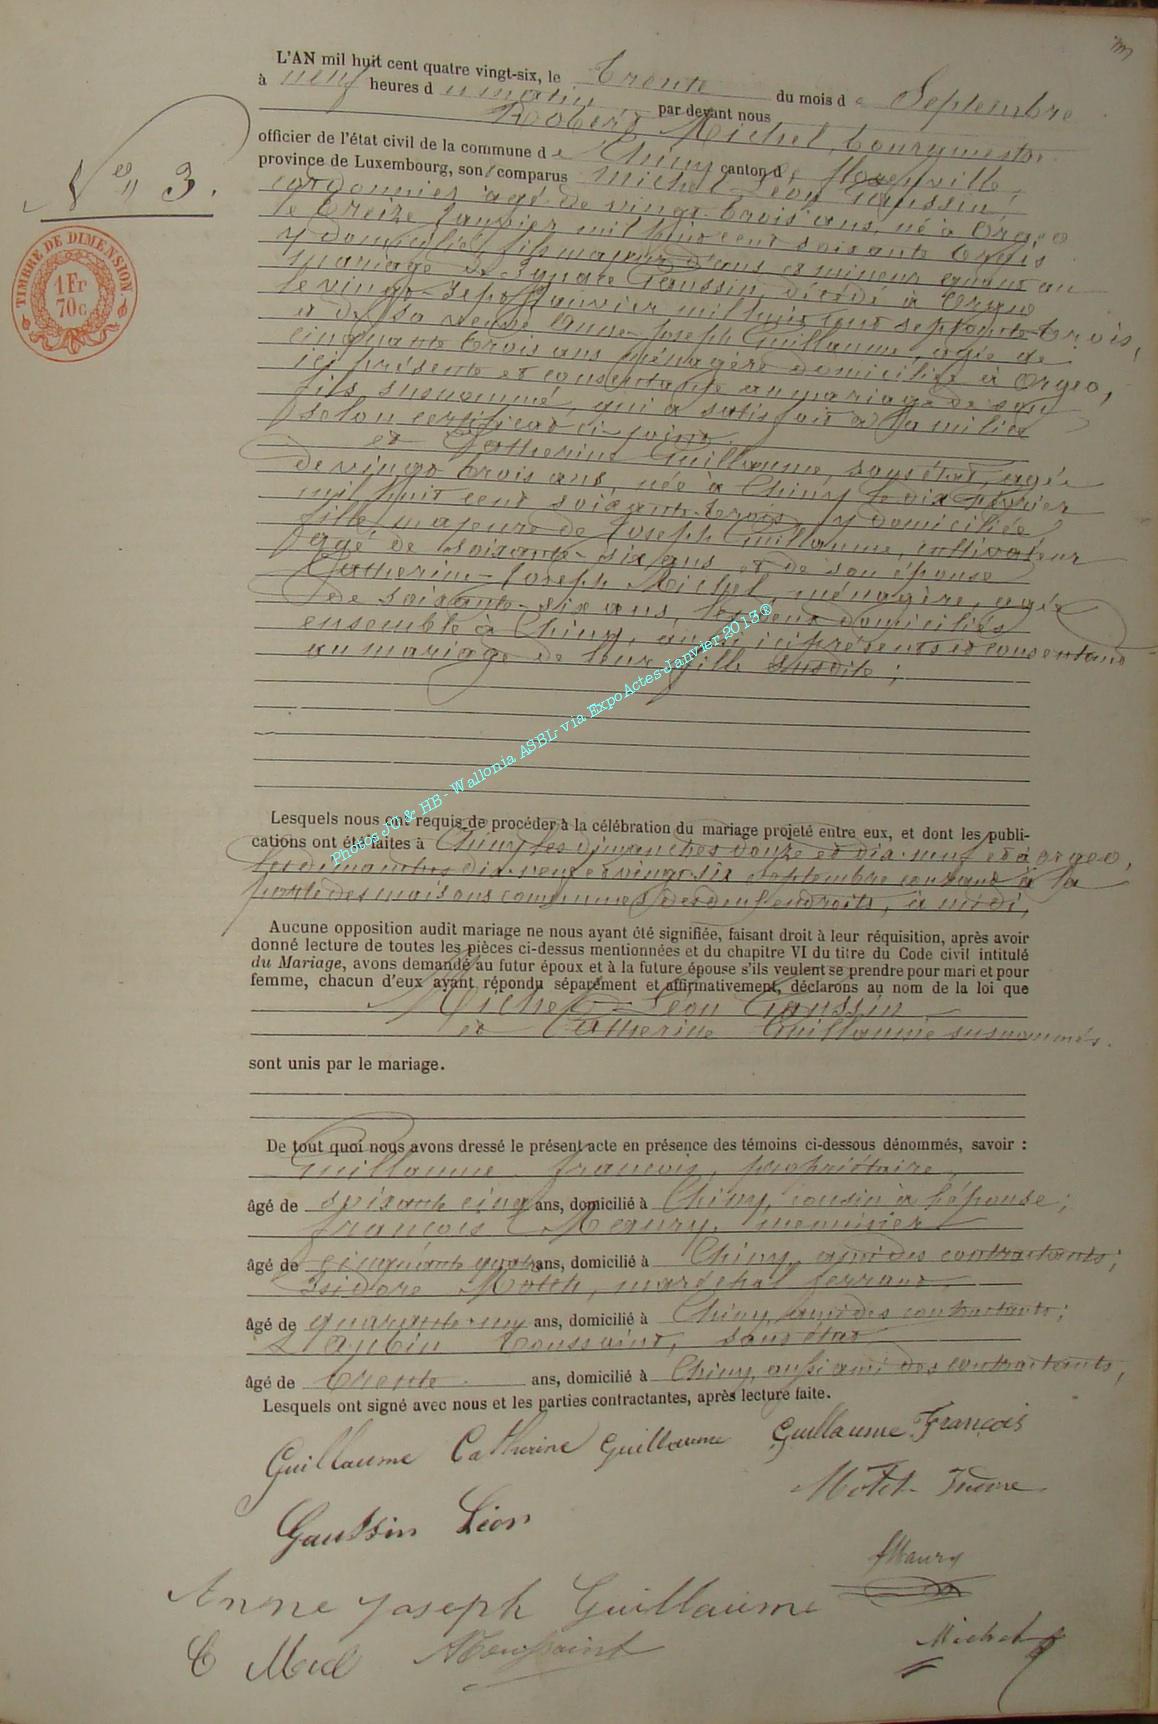 L'AN mil huit cent quatre vingt-six, le trente du mois de Septembre
à neuf heures du matin par devant nous
Robert Michel, bourgmestre
officier de l'état civil de la commune de Chiny canton de florenville,
province de Luxembourg, sont comparus Michel Léon Gaussin,
N° 3.
TIMBRE DE DIMENSION
1 Fr
70 c
cordonnier agé de vingt-trois ans, né à Orgeo
le treize Janvier mil huit cent soixante trois
y domicilié, fils majeur d'ans et mineur quant au
mariage de Ignace Gaussin, décédé à Orgeo
le vingt-sept Janvier mil huit cent septante-trois,
et de sa veuve Anne-Joseph Guillaume, agée de
cinquante trois ans ménagère domiciliée à Orgeo,
ici présente et consentante au mariage de son
fils susnommé, qui a satisfait à la milice
selon certificat ci-joint.
et Catherine Guillaume, sans état, agée
de vingt-trois ans, née à Chiny le dix février
mil huit cent soixante-trois, y domiciliée
fille majeure de Joseph Guillaume, cultivateur
agé de soixante-six ans et de son épouse
Catherine-Joseph Michel, ménagère, agée
de soixante-six ans, les deux domiciliés
ensemble à Chiny, aussi ici présents et consentant
au mariage de leur fille susdite ;
Photos JU & HB - Wallonia ASBL- via ExpoActes-Janvier 2013®
Lesquels nous ont requis de procéder à la célébration du mariage projeté entre eux, et dont les publi-
cations ont été faites à Chiny les dimanches douze et dix-neuf et à Orgeo,
les dimanches dix-neuf et vingt-six septembre courant à la
porte des maisons communes des deux endroits, à midi,
Aucune opposition audit mariage ne nous ayant été signifiée, faisant droit à leur réquisition, après avoir
donné lecture de toutes les pièces ci-dessus mentionnées et du chapitre VI du titre du Code civil intitulé
du Mariage, avons demandé au futur époux et à la future épouse s'ils veulent se prendre pour mari et pour
femme, chacun d'eux ayant répondu séparément et affirmativement, déclarons au nom de la loi que
Michel Léon Gaussin
et Catherine Guillaume susnommés.
sont unis par le mariage.
De tout quoi nous avons dressé le présent acte en présence des témoins ci-dessous dénommés, savoir :
Guillaume françois, propriétaire,
âgé de soixante cinq ans, domicilié à Chiny, cousin à l'épouse ;
françois Maury, menuisier
âgé de cinquante quatre ans, domicilié à Chiny, ami des contractants ;
Isidore Motch, maréchal ferrant,
âgé de ans, domicilié à Chiny, ami des contractants ;
Aubin Toussaint, sans état
âgé de trente ans, domicilié à Chiny, aussi ami des contractants,
Lesquels ont signé avec nous et les parties contractantes, après lecture faite.
Guillaume Catherine Guillaume Guillaume François
Gaussin Léon
fMaury
Anne joseph Guillaume
C Toussaint Michel